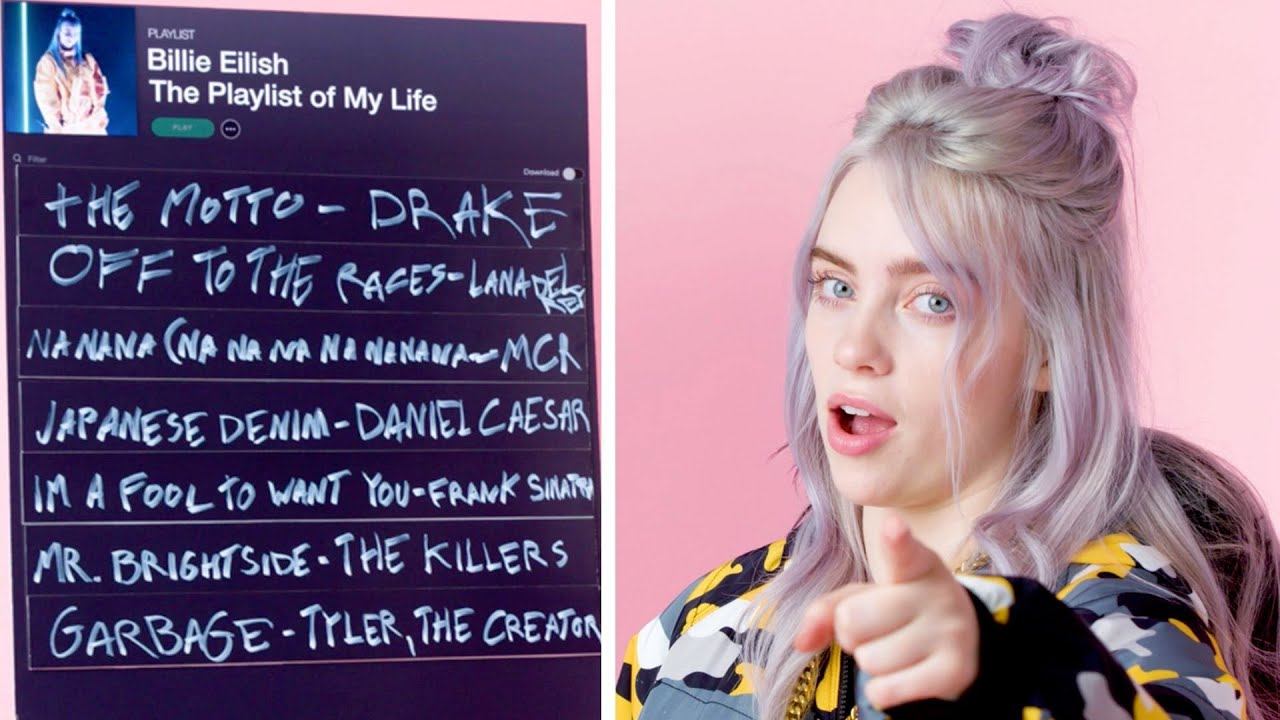 PLAYLIST
Billie Eilish
The Playlist of My Life
PLAY
Filter
Download
THE MOTTO - DRAKE
OFF TO THE RACES - LANA DEL REY
NA NANA (NA NA NA NA NANANA - MCR
JAPANESE DENIM - DANIEL CAESAR
IM A FOOL TO WANT YOU - FRANK SINATRA
MR. BRIGHTSIDE - THE KILLERS
GARBAGE - TYLER, THE CREATOR